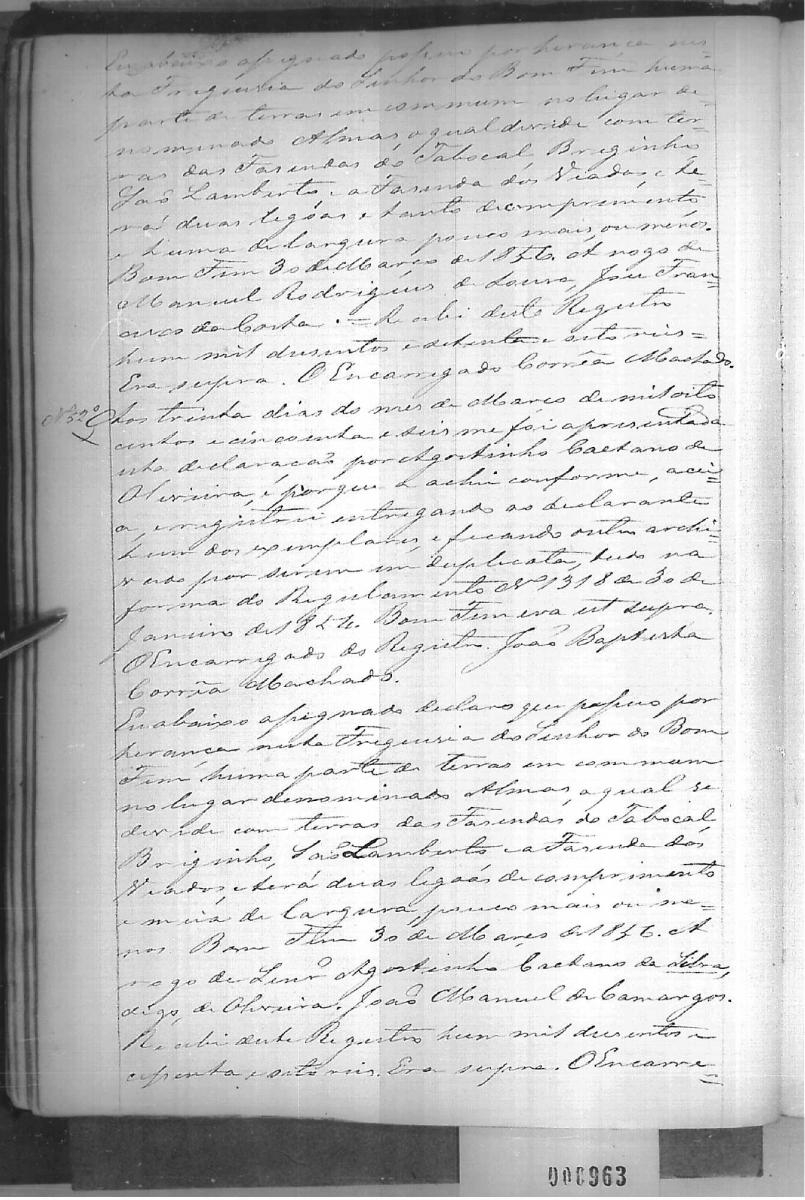 Eu abaixo assignado possuo por herança nes-
ta Freguesia do Senhor do Bom Fim huma
parte de terras em commum no lugar de-
nominado Almas, a qual devide com ter-
ras das Fasendas do Tabocal, Briginho,
Saõ Lamberto e a Fasenda dos Viados, e te-
rá duas legôas e tanto de comprimento
e huma de largura pouco mais ou menos.
Bom Fim 30 de Março de 1856. A rogo de
Manuel Rodrigues de Moura, José Fran-
cisco da Costa. = Recebi deste Registro
hum mil dusentos e setenta e sete reis =
Era supra. O Encarregado Corrêa Machado.
Nº 320
Aos trinta dias do mes de Março de mil oito
centos e cincoenta e seis me foi apresentada
esta declaração por Agostinho Caetano de
Oliveira, e porque a achei conforme, acei-
a, e registrei entregando ao declarante
hum dos exemplares, e ficando outro archi-
vado por serem em duplicata, tudo na
forma do Regulamento Nº 1318 de 30 de
Janeiro de 1854. Bom Fim era ut supra.
O Encarregado do Registro. João Baptista
Corrêa Machado.
Eu abaixo assignado declaro que possuo por
herança nesta Freguesia do Senhor do Bom
Fim, huma parte de terras em commum
no lugar denominado Almas, a qual se
devide com terras das Fasendas do Tabocal
Briginho, Saõ Lamberto e a Fasenda dos
Viados, e terá duas legoás de comprimento
e meia de largura, pouco mais ou me-
nos. Bom Fim 30 de Março de 1856. A
rogo de Senr. Agostinho Caetano da Silva,
digo, de Oliveira. João Manuel de Camargos.
Recebi deste Registro hum mil dusentos e
e sete reis. Era supra. O Encarre=
000963